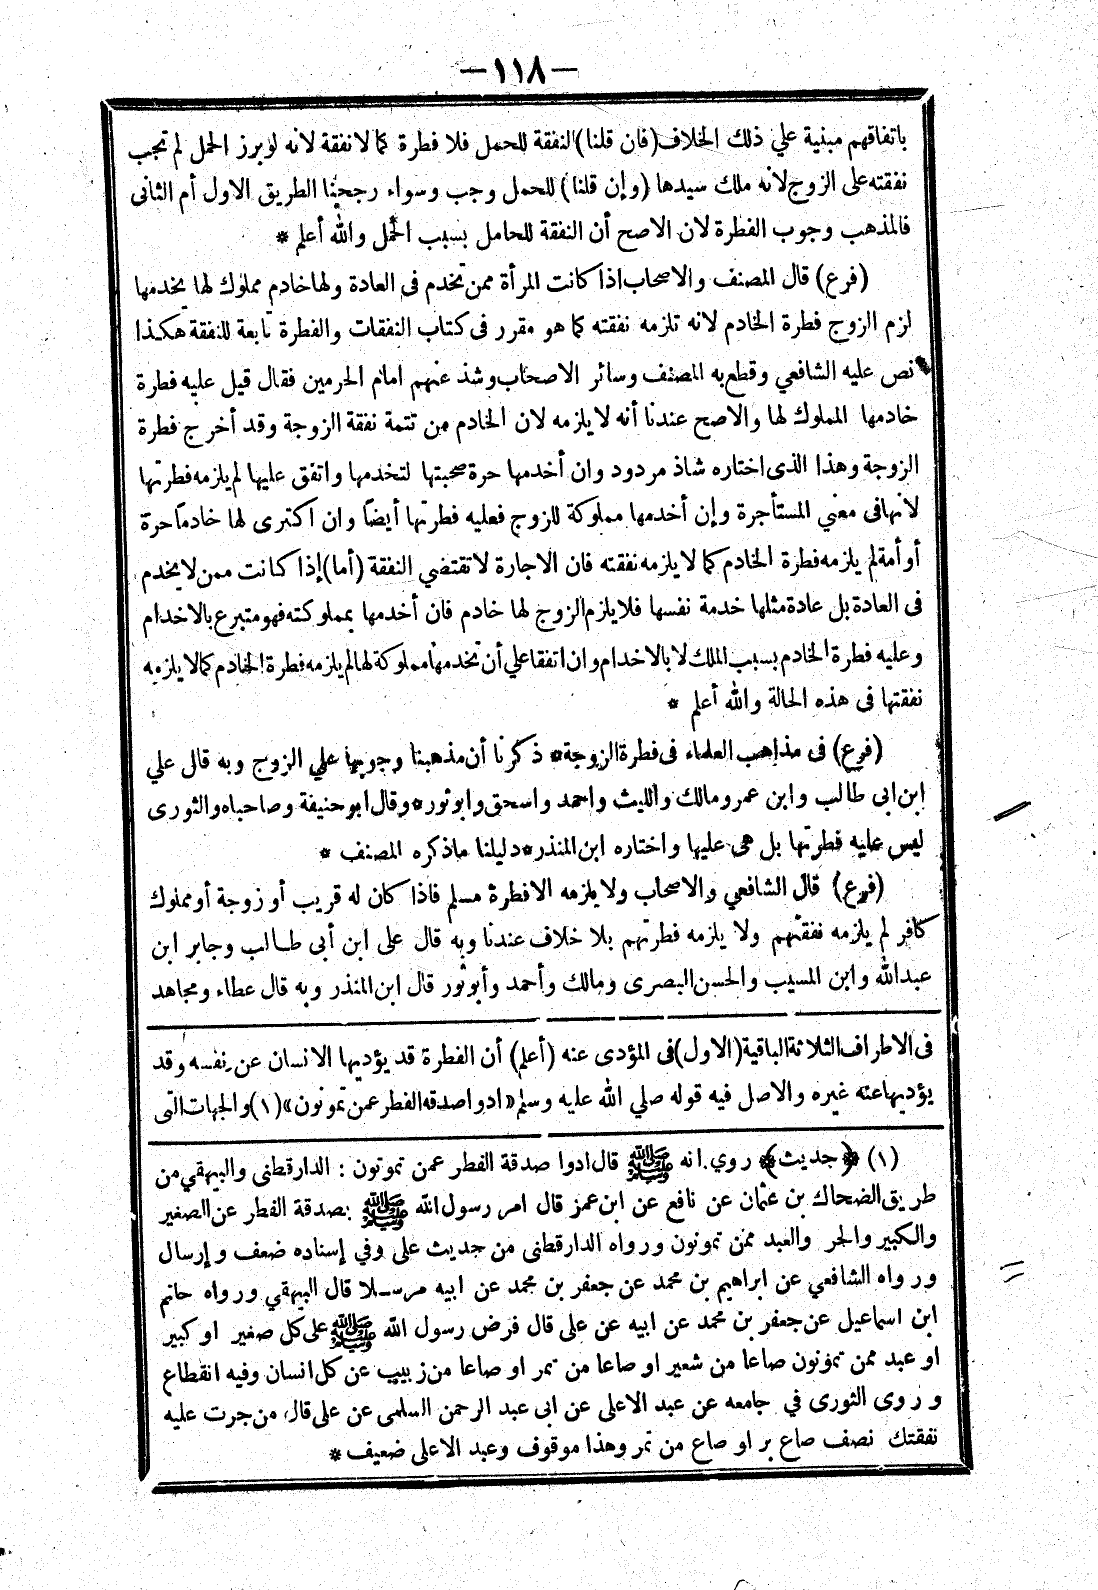 —١١٨—
باتفاقهم مبنية علي ذلك الخلاف (فان قلنا) النفقة للحمل فلا فطرة كما لا نفقة لانه لو برز الحمل لم تجب
نفقته على الزوج لانه ملك سيدها (وإن قلنا) للحمل وجب وسواء رجحنا الطريق الاول أم الثانى
فالمذهب وجوب الفطرة لان الاصح أن النفقة للحامل بسبب الحمل والله أعلم *
(فرع) قال المصنف والاصحاب اذا كانت المرأة ممن تخدم فى العادة ولها خادم مملوك لها يخدمها
لزم الزوج فطرة الخادم لانه تلزمه نفقته كما هو مقرر فى كتاب النفقات والفطرة تابعة للنفقة هكذا
نص عليه الشافعي وقطع به المصنف وسائر الاصحاب وشذ عنهم امام الحرمين فقال قيل عليه فطرة
خادمها المملوك لها والاصح عندنا أنه لا يلزمه لان الخادم من تتمة نفقة الزوجة وقد أخرج فطرة
الزوجة وهذا الذى اختاره شاذ مردود وان أخدمها حرة صحبتها لتخدمها واتفق عليها لم يلزمه فطرتها
لانها فى معني المستأجرة وإن أخدمها مملوكة للزوج فعليه فطرتها أيضاً وان اكترى لها خادماً حرة
أو أمة لم يلزمه فطرة الخادم كما لا يلزمه نفقته فان الاجارة لا تقتضي النفقة (أما) إذا كانت ممن لا يخدم
فى العادة بل عادة مثلها خدمة نفسها فلا يلزم الزوج لها خادم فان أخدمها بمملوكته فهو متبرع بالاخدام
وعليه فطرة الخادم بسبب الملك لا بالاخدام وان اتفقا علي أن تخدمها مملوكة لها لم يلزمه فطرة الخادم كما لا يلزمه
نفقتها فى هذه الحالة والله أعلم *
(فرع) فى مذاهب العلماء فى فطرة الزوجة * ذكرنا أن مذهبنا وجوبها علي الزوج وبه قال علي
ابن ابى طالب وابن عمر ومالك والليث واحمد واسحق وابو ثور * وقال ابو حنيفة وصاحباه والثورى
ليس عليه فطرتها بل هى عليها واختاره ابن المنذر * دليلنا ما ذكره المصنف *
(فرع) قال الشافعي والاصحاب ولا يلزمه الا فطرة مسلم فاذا كان له قريب أو زوجة أو مملوك
كافر لم يلزمه نفقتهم ولا يلزمه فطرتهم بلا خلاف عندنا وبه قال على ابن أبى طالب وجابر ابن
عبد الله وابن المسيب والحسن البصرى ومالك وأحمد وأبو ثور قال ابن المنذر وبه قال عطاء ومجاهد
فى الاطراف الثلاثة الباقية (الاول) فى المؤدى عنه (أعلم) أن الفطرة قد يؤديها الانسان عن نفسه وقد
يؤديها عنه غيره والاصل فيه قوله صلي الله عليه وسلم «ادوا صدقه الفطر عمن تمونون» (١) والجهات التى
(١) * ﴿حديث﴾ * روي انه ﷺ قال ادوا صدقة الفطر عمن تمونون : الدارقطنى والبيهقي من
طريق الضحاك بن عثمان عن نافع عن ابن عمر قال امر رسول الله ﷺ بصدقة الفطر عن الصغير
والكبير والحر والعبد ممن تمونون ورواه الدارقطنى من حديث على وفي إسناده ضعف وإرسال
ورواه الشافعي عن ابراهيم بن محمد عن جعفر بن محمد عن ابيه مرسلا قال البيهقي ورواه حاتم
ابن اسماعيل عن جعفر بن محمد عن ابيه عن على قال فرض رسول الله ﷺ على كل صغير او كبير
او عبد ممن تمونون صاعا من شعير او صاعا من تمر او صاعا من زبيب عن كل انسان وفيه انقطاع
وروى الثورى في جامعه عن عبد الاعلى عن ابى عبد الرحمن السلمى عن على قال من جرت عليه
نفقتك نصف صاع بر او صاع من تمر وهذا موقوف وعبد الاعلى ضعيف *